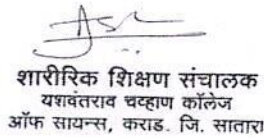 शारीरिक शिक्षण संचालक
यशवंतराव चव्हाण कॉलेज
ऑफ सायन्स, कराड. जि. सातारा